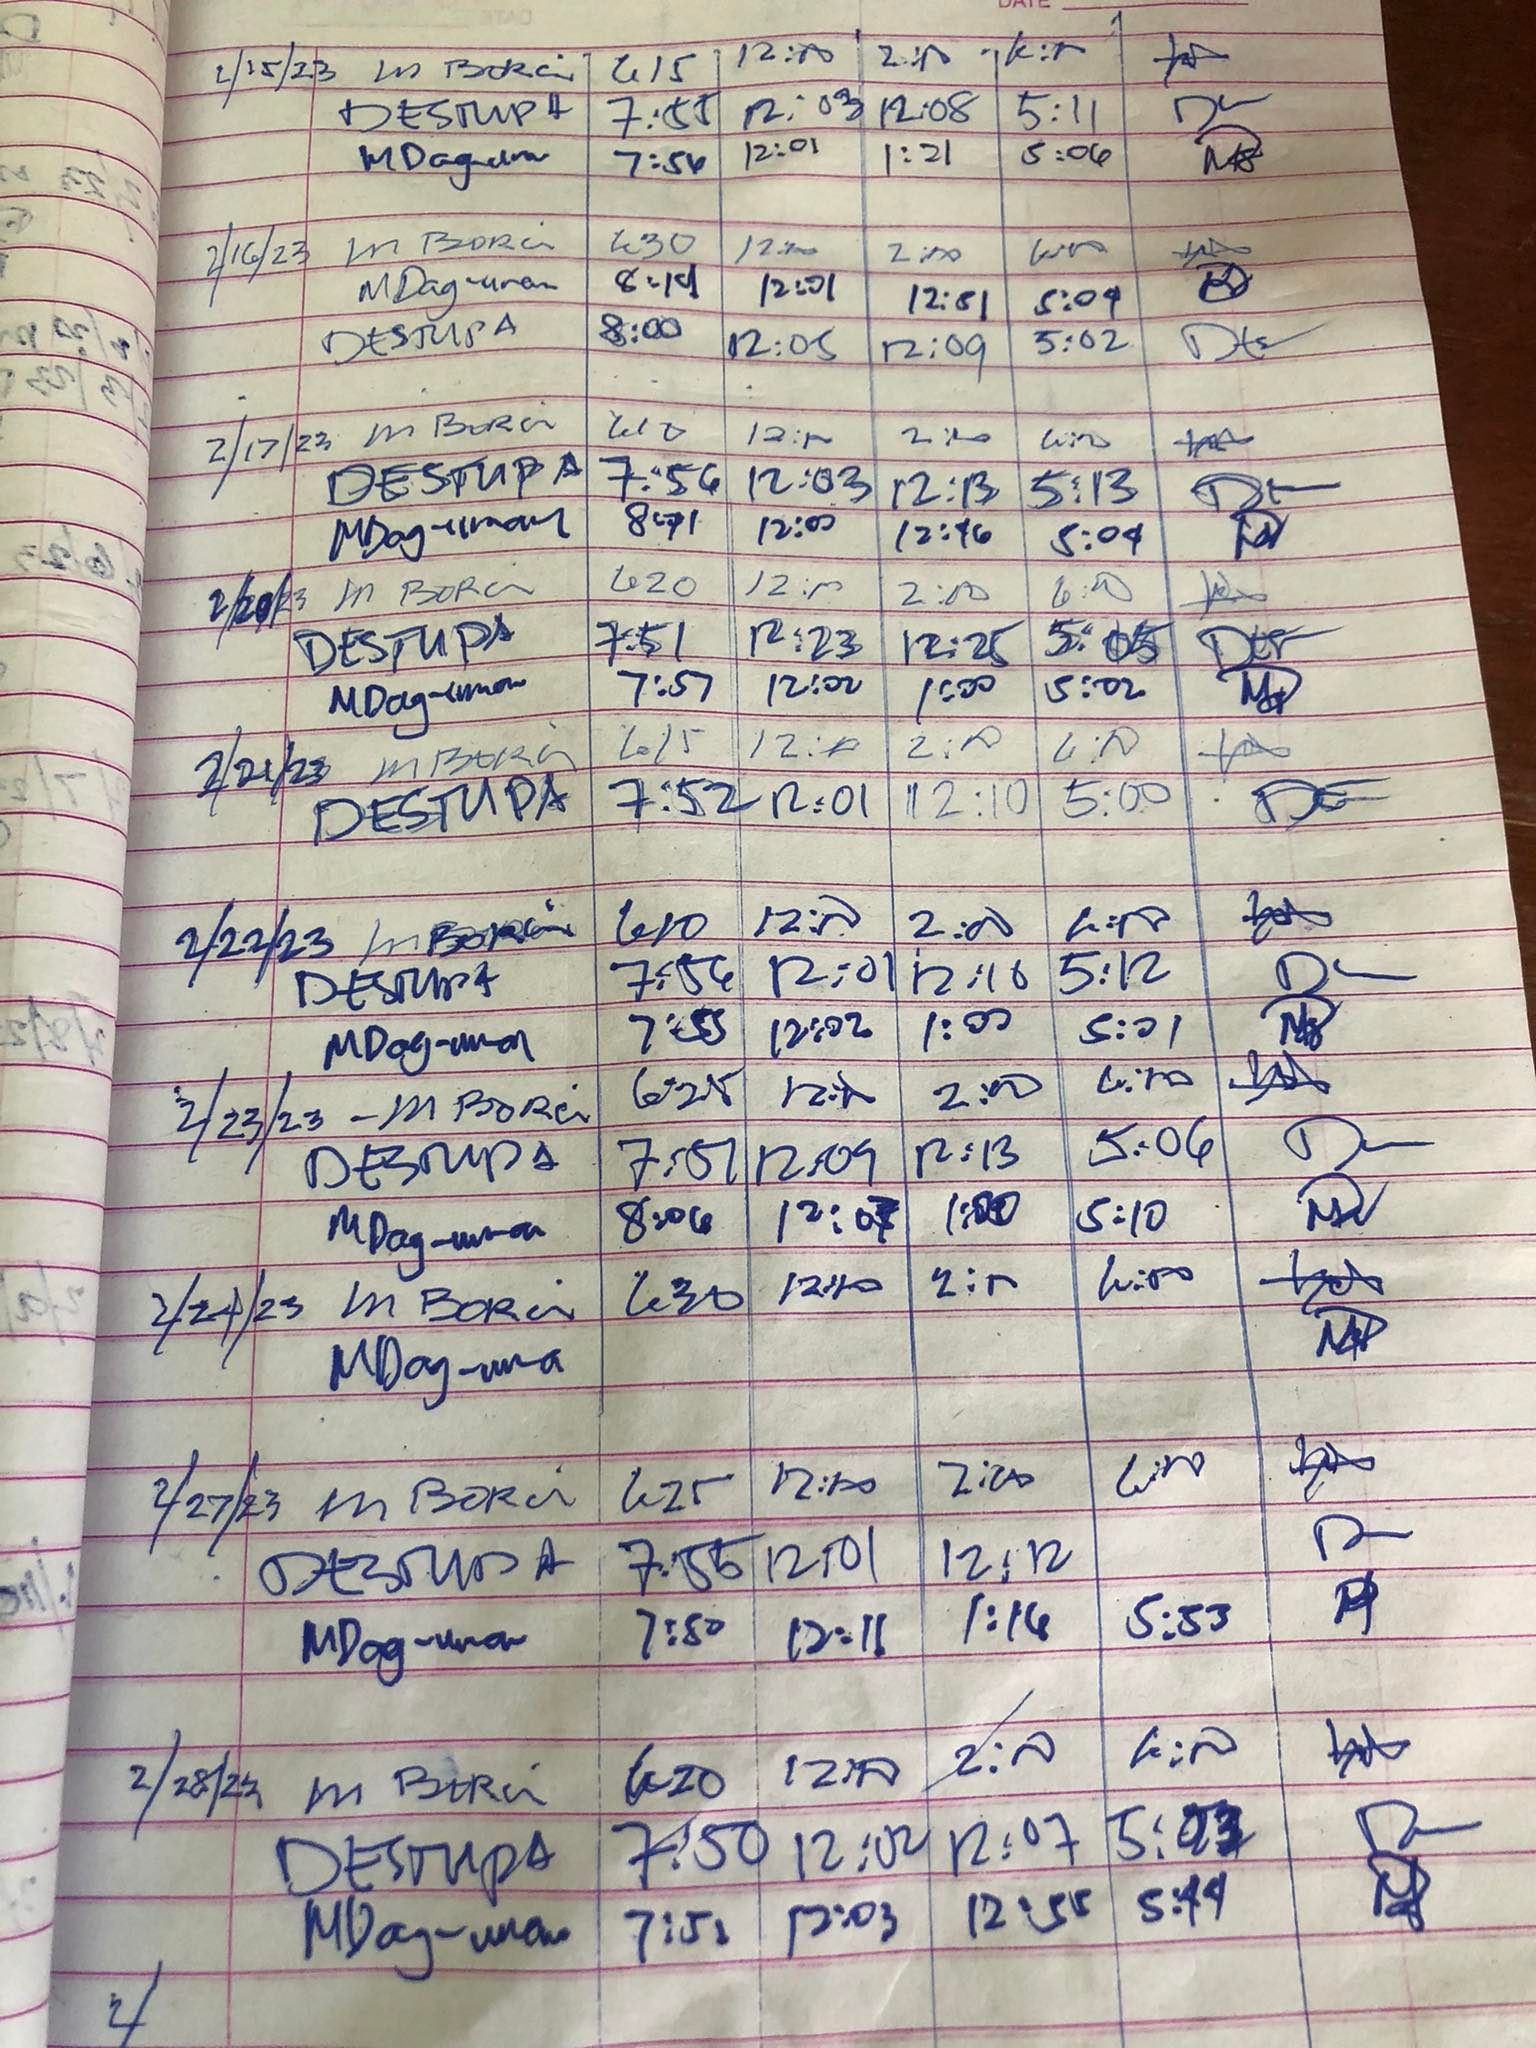 DATE
2/15/23 M Borci 615 12:00 2:00 6:00
DESTUPA 7:55 12:03 12:08 5:11
MDag-uman 7:56 12:01 1:21 5:06
2/16/23 M Borci 630 12:00 2:00 6:00
MDag-uman 12:01 12:51 5:04
DESTUPA 8:00 12:05 12:09 5:02
2/17/23 M Borci 610 12:00 2:00 6:00
DESTUPA 7:56 12:03 12:13 5:13
MDag-uman 12:00 12:46 5:04
2/20/23 M Borci 620 12:00 2:00 6:00
DESTUPA 7:51 12:23 12:25 5:05
MDag-uman 7:57 12:02 1:00 5:02
2/21/23 M Borci 615 12:00 2:00 6:00
DESTUPA 7:52 12:01 12:10 5:00
2/22/23 M Borci 610 12:00 2:00 6:00
DESTUPA 7:56 12:01 12:10 5:12
MDag-uman 7:55 12:02 1:00 5:01
2/23/23 - M Borci 6:25 12:00 2:00 6:00
DESTUPA 7:57 12:09 12:13 5:06
MDag-uman 8:06 12:07 1:00 5:10
2/24/23 M Borci 630 12:00 2:00 6:00
MDag-uman
2/27/23 M Borci 625 12:00 2:00 6:00
DESTUPA 7:55 12:01 12:12
MDag-uman 7:50 12:11 1:16 5:53
2/28/23 M Borci 620 12:00 2:00 6:00
DESTUPA 7:50 12:02 12:07 5:03
MDag-uman 7:51 12:03 12:55 5:44
2/